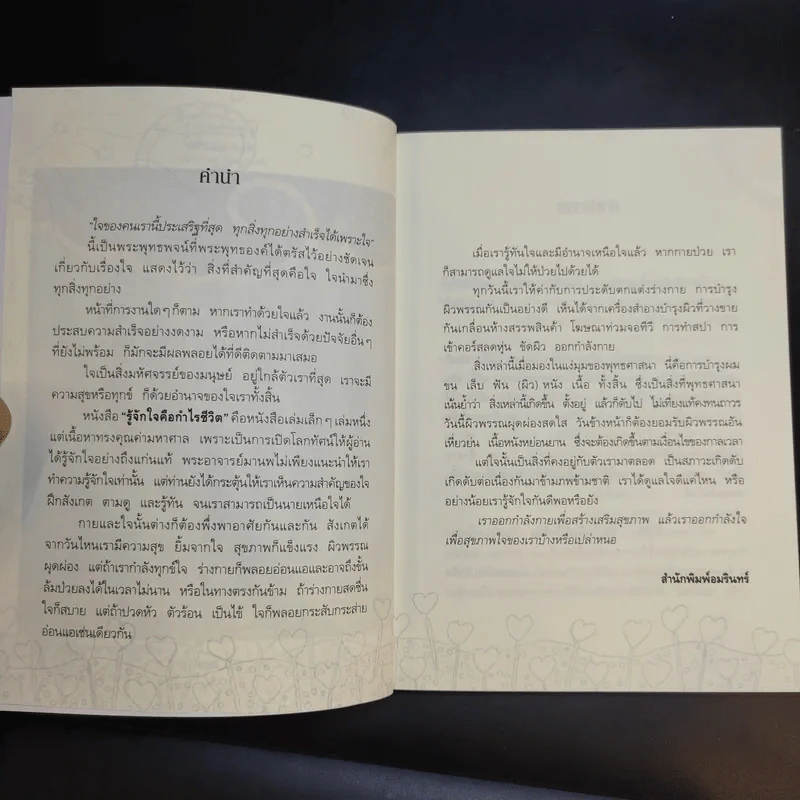 คำนำ
"ใจของคนเรานี้ประเสริฐที่สุด ทุกสิ่งทุกอย่างสำเร็จได้เพราะใจ"
นี้เป็นพระพุทธพจน์ที่พระพุทธองค์ได้ตรัสไว้อย่างชัดเจน
เกี่ยวกับเรื่องใจ แสดงไว้ว่า สิ่งที่สำคัญที่สุดคือใจ ใจนำมาซึ่ง
ทุกสิ่งทุกอย่าง
หน้าที่การงานใดๆ ก็ตาม หากเราทำด้วยใจแล้ว งานนั้นก็ต้อง
ประสบความสำเร็จอย่างงดงาม หรือหากไม่สำเร็จด้วยปัจจัยอื่นๆ
ที่ยังไม่พร้อม ก็มักจะมีผลพลอยได้ที่ดีติดตามมาเสมอ
ใจเป็นสิ่งมหัศจรรย์ของมนุษย์ อยู่ใกล้ตัวเราที่สุด เราจะมี
ความสุขหรือทุกข์ ก็ด้วยอำนาจของใจเราทั้งสิ้น
หนังสือ "รู้จักใจคือกำไรชีวิต" คือหนังสือเล่มเล็กๆ เล่มหนึ่ง
แต่เนื้อหาทรงคุณค่ามหาศาล เพราะเป็นการเปิดโลกทัศน์ให้ผู้อ่าน
ได้รู้จักใจอย่างถึงแก่นแท้ พระอาจารย์มานพไม่เพียงแนะนำให้เรา
ทำความรู้จักใจเท่านั้น แต่ท่านยังได้กระตุ้นให้เราเห็นความสำคัญของใจ
ฝึกสังเกต ตามดู และรู้ทัน จนเราสามารถเป็นนายเหนือใจได้
กายและใจนั้นต่างก็ต้องพึ่งพาอาศัยกันและกัน สังเกตได้
จากวันไหนเรามีความสุข ยิ้มจากใจ สุขภาพก็แข็งแรง ผิวพรรณ
ผุดผ่อง แต่ถ้าเรากำลังทุกข์ใจ ร่างกายก็พลอยอ่อนแอและอาจถึงขั้น
ล้มป่วยลงได้ในเวลาไม่นาน หรือในทางตรงกันข้าม ถ้าร่างกายสดชื่น
ใจก็สบาย แต่ถ้าปวดหัว ตัวร้อน เป็นไข้ ใจก็พลอยกระสับกระส่าย
อ่อนแอเช่นเดียวกัน
เมื่อเรารู้ทันใจและมีอำนาจเหนือใจแล้ว หากกายป่วย เรา
ก็สามารถดูแลใจไม่ให้ป่วยไปด้วยได้
ทุกวันนี้เราให้ค่ากับการประดับตกแต่งร่างกาย การบำรุง
ผิวพรรณกันเป็นอย่างดี เห็นได้จากเครื่องสำอางบำรุงผิวที่วางขาย
กันเกลื่อนห้างสรรพสินค้า โฆษณาท่วมจอทีวี การทำสปา การ
เข้าคอร์สลดหุ่น ขัดผิว ออกกำลังกาย
สิ่งเหล่านี้เมื่อมองในแง่มุมของพุทธศาสนา นี่คือการบำรุงผม
ขน เล็บ ฟัน (ผิว) หนัง เนื้อ ทั้งสิ้น ซึ่งเป็นสิ่งที่พุทธศาสนา
เน้นย้ำว่า สิ่งเหล่านี้เกิดขึ้น ตั้งอยู่ แล้วก็ดับไป ไม่เที่ยงแท้คงทนถาวร
วันนี้ผิวพรรณผุดผ่องสดใส วันข้างหน้าก็ต้องยอมรับผิวพรรณอัน
เหี่ยวย่น เนื้อหนังหย่อนยาน ซึ่งจะต้องเกิดขึ้นตามเงื่อนไขของกาลเวลา
แต่ใจนั้นเป็นสิ่งที่คงอยู่กับตัวเรามาตลอด เป็นสภาวะเกิดดับ
เกิดดับต่อเนื่องกันมาข้ามภพข้ามชาติ เราได้ดูแลใจดีแค่ไหน หรือ
อย่างน้อยเรารู้จักใจกันดีพอหรือยัง
เราออกกำลังกายเพื่อสร้างเสริมสุขภาพ แล้วเราออกกำลังใจ
เพื่อสุขภาพใจของเราบ้างหรือเปล่าหนอ
สำนักพิมพ์อมรินทร์